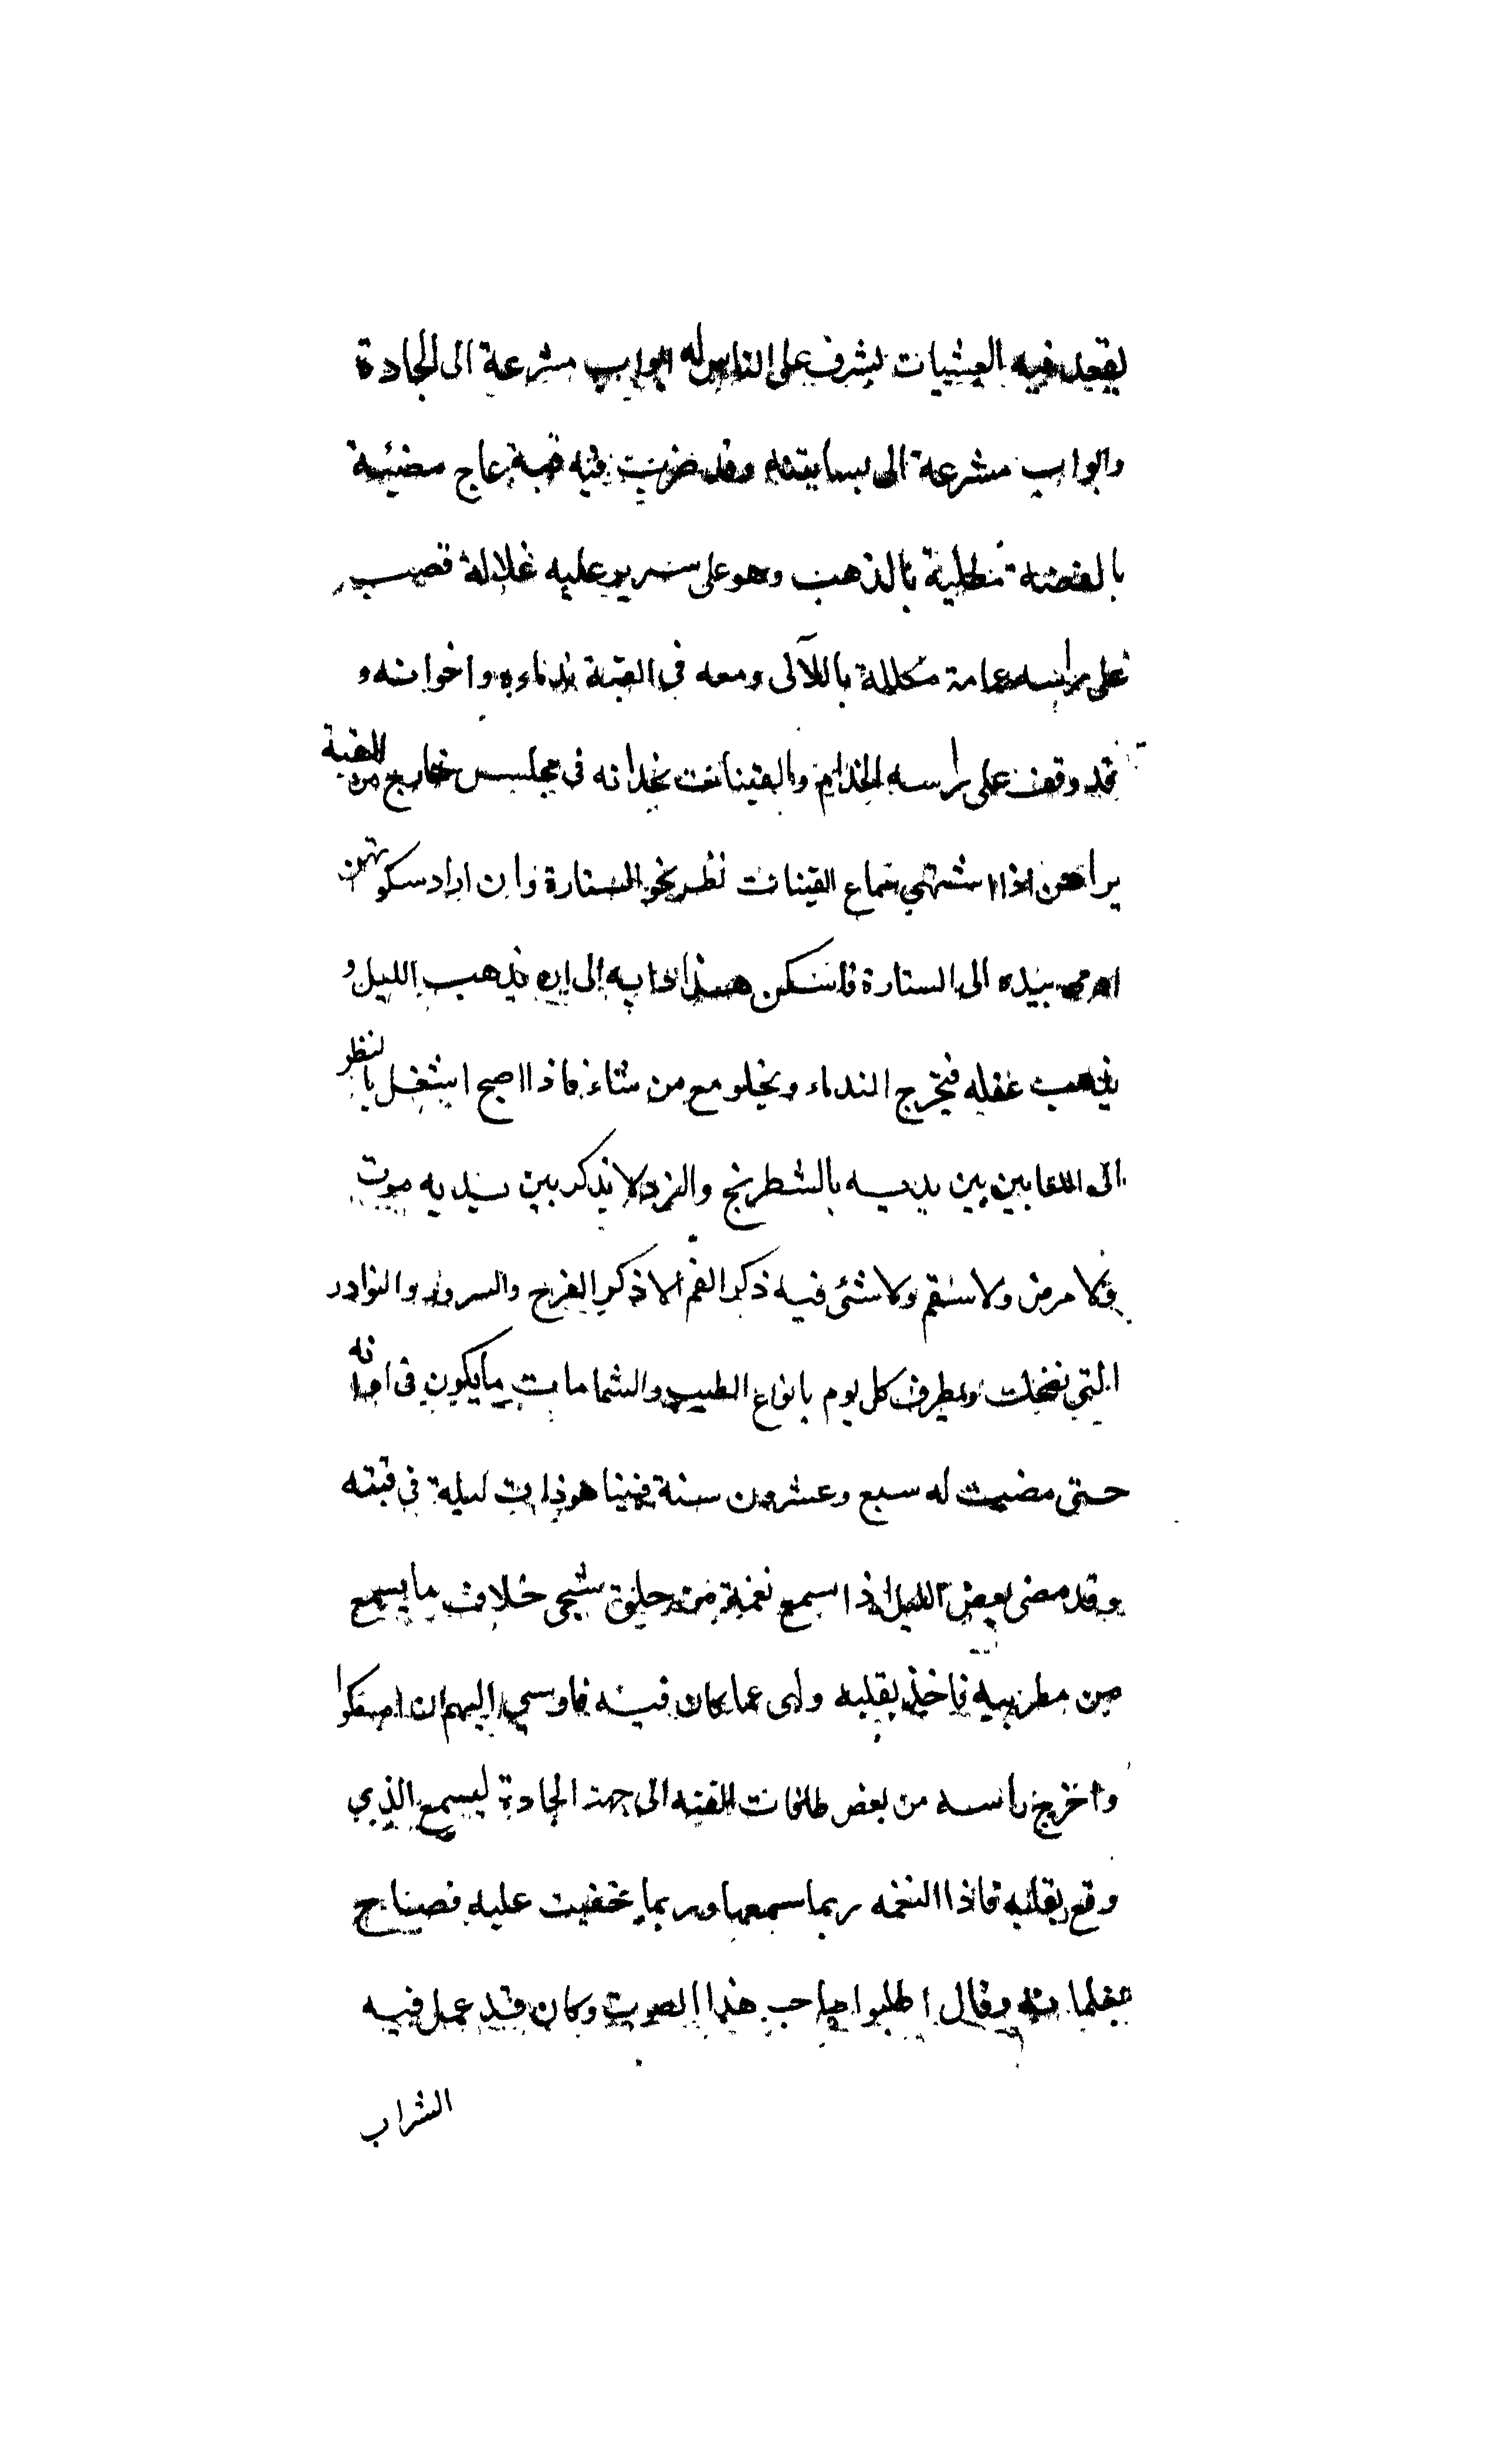 يقعد فيه العشيات يشرف على الناس له ابواب مشرعة الى الجادة
وابواب مشرعة الى بساتينه وقد ضربت فيه قبة عاج مضئية
بالفضة مطلية بالذهب وهو على سرير عليه غلالة قصب
على راسه عمامة مكللة باللآلى ومعه فى القبة ندماءه واخوانه و
قد وقف على راسه الخدام والقينات بحذانه فى مجلس خارج من القبة
يراهن اذا اشتهي سماع القينات نظر نحو الستارة وان اراد سكوتهن
اومى بيده الى الستارة فامسكن هذا دابه الى ان يذهب الليل و
يذهب عقله فيخرج الندماء ويخلو مع من شاء فاذا اصبح اشتغل بالنظر
الى اللعابين بين يديه بالشطرنج والنرد لا يذكر بين يديه موت
ولا مرض ولا سقم ولا شئ فيه ذكر الغم الا ذكر الفرح والسرور والنوادر
التي تضحك ويطرف كل يوم بانواع الطيب والشمامات مايكون فى اوانه
حتى مضيت له سبع وعشرون سنة فبينا هو ذات ليلة في قبته
وقد مضى بعض الليل اذا سمع نغمة من حلق شجى خلاف ما يسمع
من مطربيه فاخذ بقلبه ولهى عما كان فيه فاومى اليهم ان امسكوا
واخرج راسه من بعض طاقات القبه الى جهة الجادة ليسمع الذي
وقع بقلبه فاذا النغمه ربما سمعها وربما خفيت عليه فصاح
بغلمانه وقال اطلبوا صاحب هذا الصوت وكان قد عمل فيه
الشراب